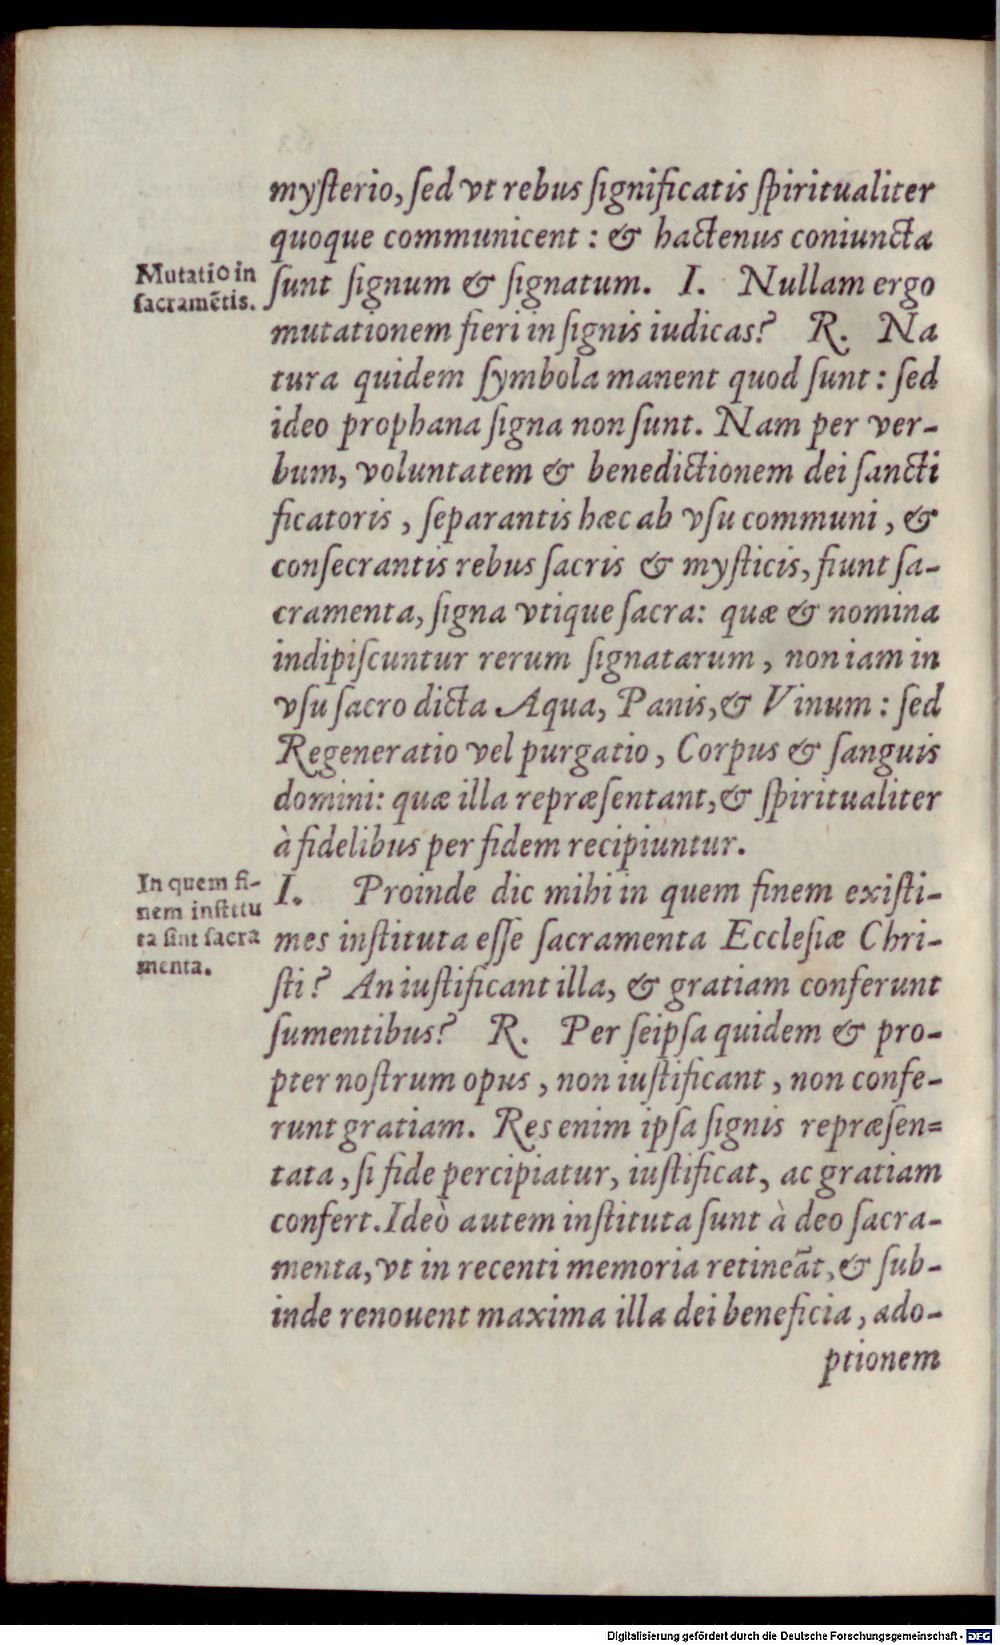 myſterio, ſed vt rebus ſignificatis ſpiritualiter
quoque communicent : & hactenus coniuncta
Mutatio in
ſacramẽtis.
ſunt ſignum & ſignatum. I. Nullam ergo
mutationem fieri in ſignis iudicas? R. Na
tura quidem ſymbola manent quod ſunt : ſed
ideo prophana ſigna non ſunt. Nam per ver-
bum, voluntatem & benedictionem dei ſancti
ficatoris , ſeparantis hæc ab vſu communi , &
conſecrantis rebus ſacris & myſticis, fiunt ſa-
cramenta, ſigna vtique ſacra: quæ & nomina
indipiſcuntur rerum ſignatarum , non iam in
vſu ſacro dicta Aqua, Panis, & Vinum : ſed
Regeneratio vel purgatio , Corpus & ſanguis
domini: quæ illa repræſentant, & ſpiritualiter
à fidelibus per fidem recipiuntur.
In quem fi-
nem inſtitu
ta ſint ſacra
menta.
I. Proinde dic mihi in quem finem exiſti-
mes inſtituta eſſe ſacramenta Eccleſiæ Chri-
ſti? An iuſtificant illa, & gratiam conferunt
ſumentibus? R. Per ſeipſa quidem & pro-
pter noſtrum opus , non iuſtificant , non confe-
runt gratiam. Res enim ipſa ſignis repræſen=
tata , ſi fide percipiatur, iuſtificat, ac gratiam
confert. Ideò autem inſtituta ſunt à deo ſacra-
menta, vt in recenti memoria retineãt, & ſub-
inde renouent maxima illa dei beneficia , ado-
ptionem
Digitalisierung gefördert durch die Deutsche Forschungsgemeinschaft - DFG